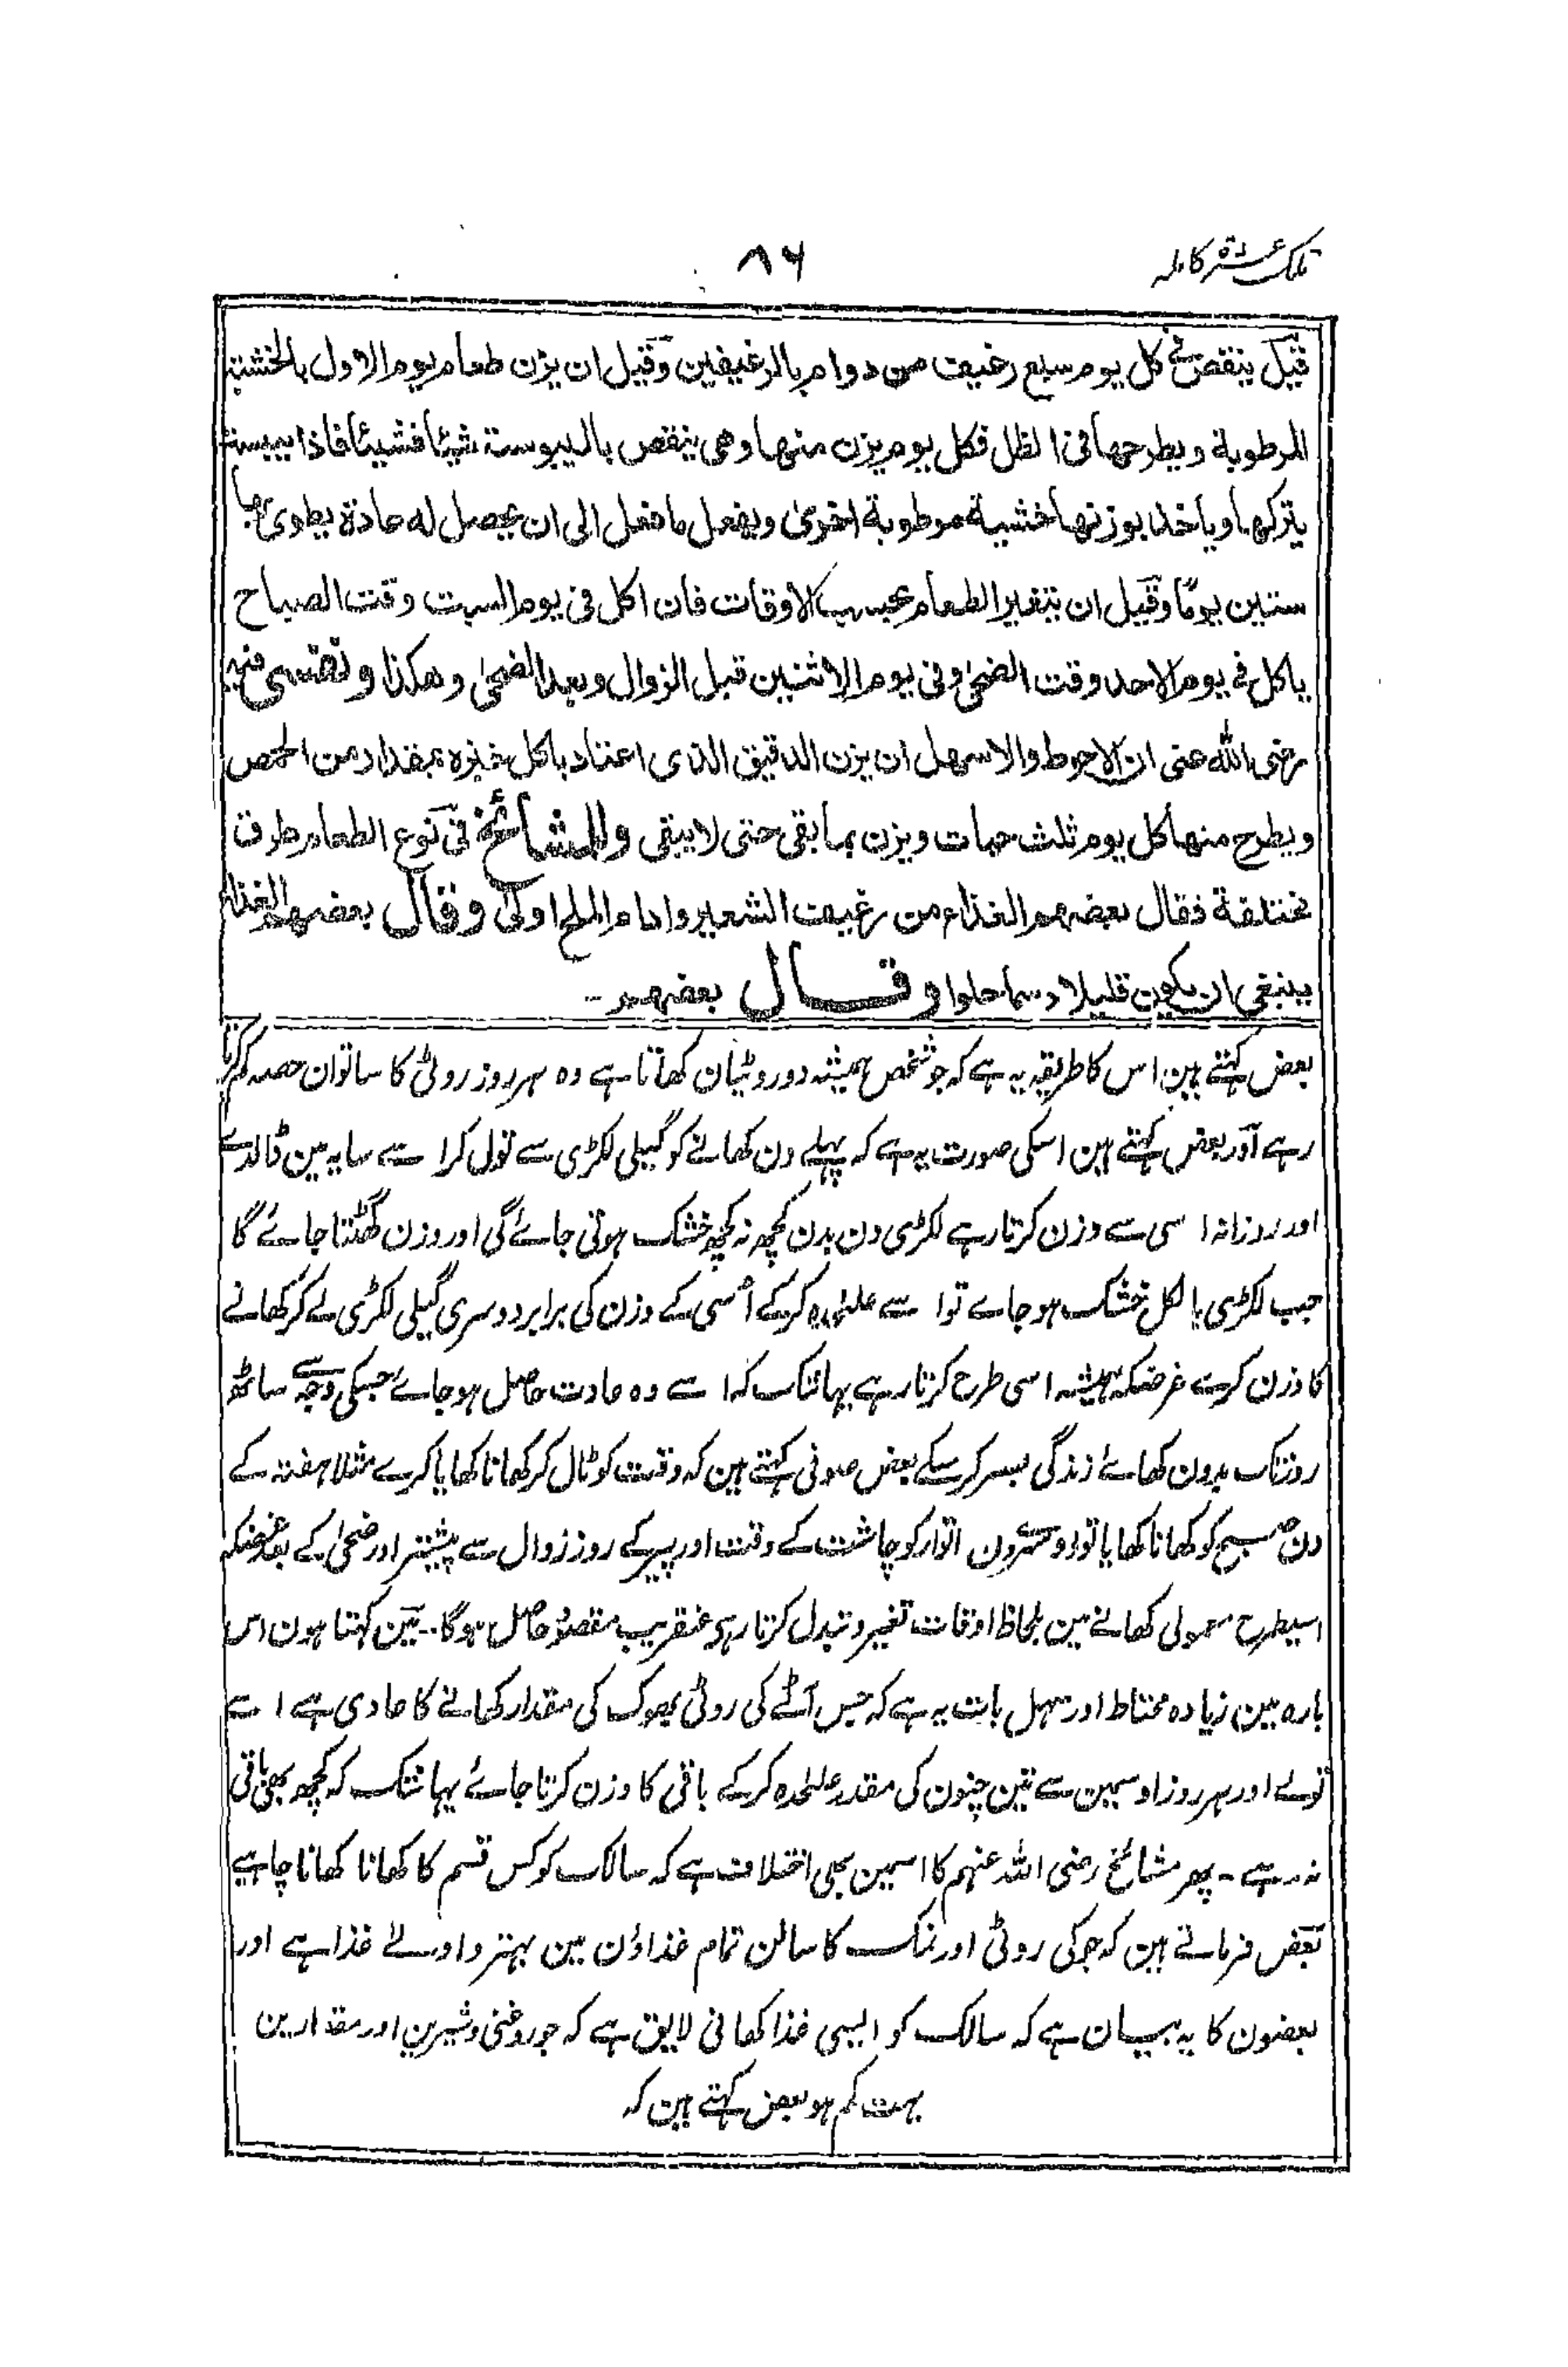 تلک عشرة کاملہ
۸۶
قیل ینقص فی کل یوم سبع رغیف من دوام بالرغیفین وقیل ان یزن طعام یوم الاول بالخشبة
المرطوبة ویطرحها فی الظل فکل یوم یزن منها وهی ینقص بالیبوسة شیئا فشیئا فاذا یبست
یترکها ویاخذ بوزنها خشبة مرطوبة اخری ویفعل ما فعل الی ان یحصل له عادة یطوی بها
ستین یوما وقیل ان یتغیر الطعام بحسب الاوقات فان اکل فی یوم السبت وقت الصباح
یاکل فی یوم الاحد وقت الضحی وفی یوم الاثنین قبل الزوال وبعد الضحی وهکذا و
رضی الله عنی ان الاحوط والاسهل ان یزن الدقیق الذی اعتاد باکل خبزه بمقدار من الحمص
ویطرح منها کل یوم ثلث حبات ویزن بما بقی حتی لا یبقی وللمشائخ فی نوع الطعام طرق
مختلفة فقال بعضهم الغذاء من رغیف الشعیر وادام الملح اولی وقال بعضهم الغذاء
ینبغی ان یکون قلیلا دسما حلوا وقال بعضهم ۔۔
بعض کہتے ہین اس کا طریقہ یہ ہے کہ جو شخص ہمیشہ دو روٹیان کھاتا ہے وہ ہر روز روٹی کا ساتوان حصہ کم کرتا
رہے اور بعض کہتے ہین اسکی صورت یہ ہے کہ پہلے دن کھانے کو گیلی لکڑی سے تول کر اسے سایہ مین ڈالدے
اور روزانہ اسی سے وزن کرتا رہے لکڑی دن بدن کچھ نہ کچھ خشک ہوتی جائے گی اور وزن گھٹتا جائے گا
جب لکڑی بالکل خشک ہو جاے تو اسے علٰحدہ کر کے اُسی کے وزن کی برابر دوسری گیلی لکڑی لے کر کھانے
کا وزن کرے غرضکہ ہمیشہ اسی طرح کرتا رہے یہانتک کہ اسے وہ عادت حاصل ہو جائے جسکی وجہ سے ساٹھ
روز تک بدون کھائے زندگی بسر کر سکے بعض صوفی کہتے ہین کہ وقت کو ٹال کر کھانا کھایا کرے مثلا ہفتہ کے
دن صبح کو کھانا کھایا تو دوسرے دن اتوار کو چاشت کے وقت اور پیر کے روز زوال سے پیشتر اور ضحیٰ کے بعد غرضکہ
اسیطرح معمولی کھانے مین بلحاظ اوقات تغیر و تبدل کرتا رہے عنقریب مقصود حاصل ہوگا ۔۔ مین کہتا ہون اس
بارہ مین زیادہ محتاط اور سہل بات یہ ہے کہ جس آٹے کی روٹی بھوک کی مقدار کھانے کا عادی ہے اسے
تولے اور ہر روز اوسمین سے تین چنون کی مقدر علٰحدہ کر کے باقی کا وزن کرتا جائے یہانتک کہ کچھ بھی باقی
نہ رہے ۔ پھر مشائخ رضی اللہ عنہم کا اسمین بھی اختلاف ہے کہ سالک کو کس قسم کا کھانا کھانا چاہیے
بعض فرماتے ہین کہ جو کی روٹی اور نمک کا سالن تمام غذاؤن مین بہتر و اولے غذا ہے اور
بعضون کا یہ بیان ہے کہ سالک کو ایسی غذا کھانی لایق ہے کہ جو روغنی و شیرین اور مقدارین
بہت کم ہو بعض کہتے ہین کہ